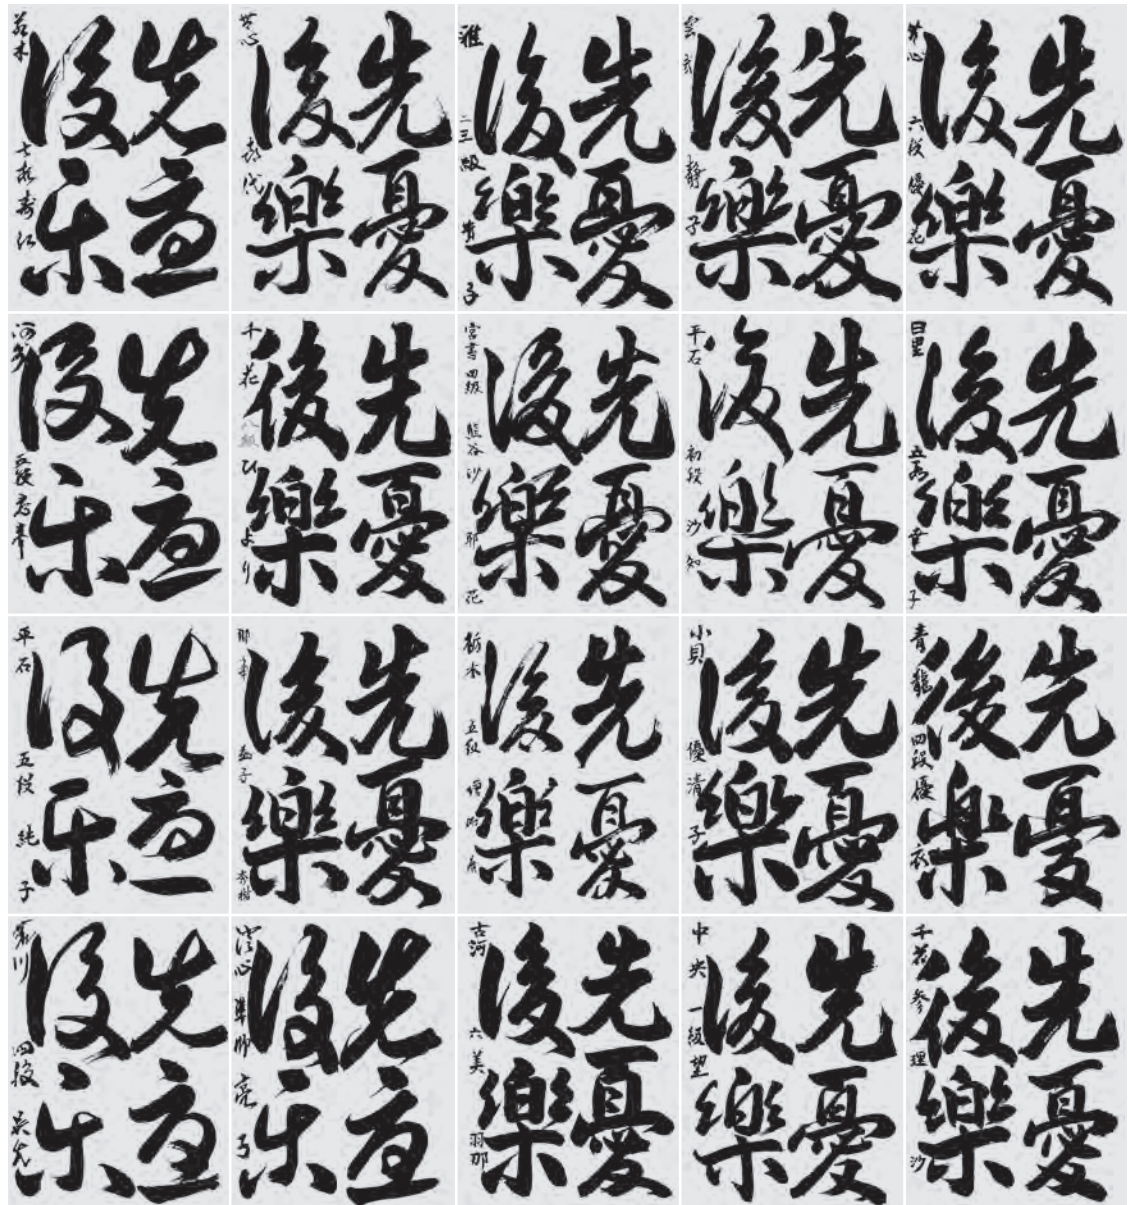 先憂
後樂
六段 優花
先憂
後樂
静子
先憂
後樂
雅 二三級 貴子
先憂
後樂
先憂
後樂
若木 七段 寿江
先憂
後樂
日里 五段 幸子
先憂
後樂
平石 初段 沙知
先憂
後樂
宮書 四級 熊谷沙耶花
先憂
後樂
千花 八級 ひより
先憂
後樂
先憂
後樂
青龍 四段 優衣
先憂
後樂
小貝 優 清子
先憂
後樂
栃木 五段
先憂
後樂
先憂
後樂
平石 五段 純子
先憂
後樂
千花 参 理沙
先憂
後樂
中央 一級 望
先憂
後樂
古河 六 美羽那
先憂
後樂
準師
先憂
後樂
四段